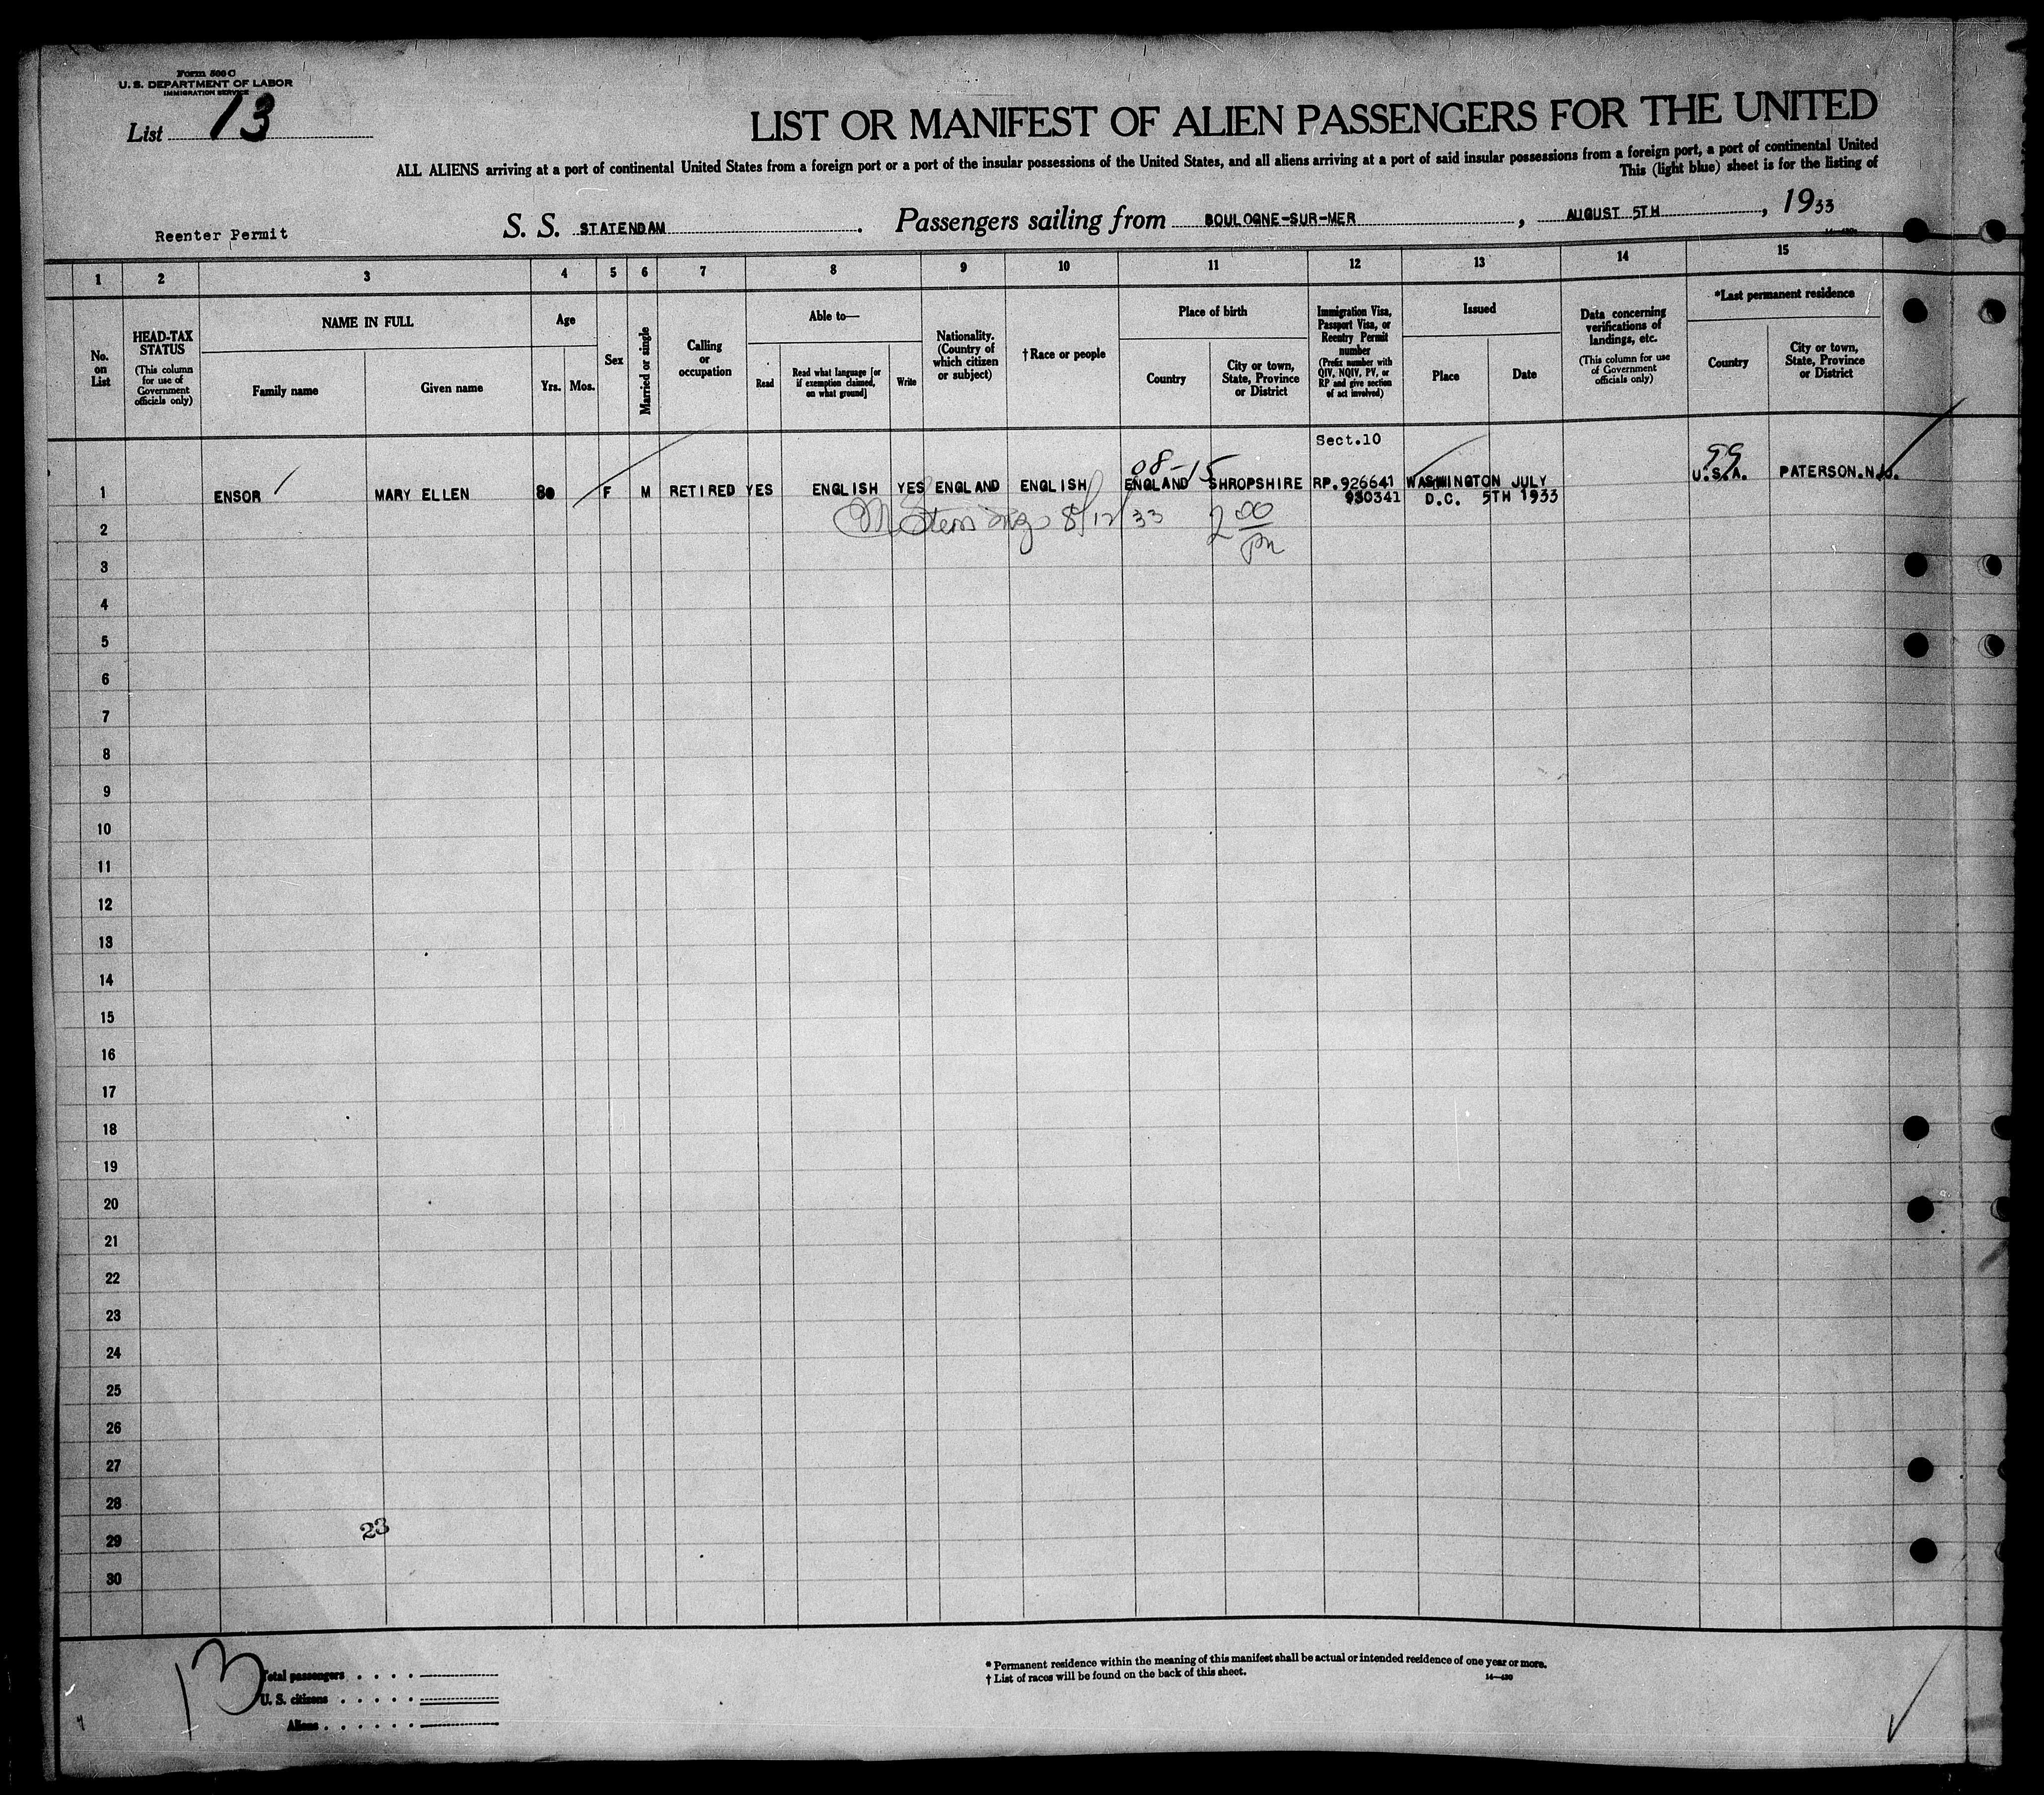 Form 500 C
U. S. DEPARTMENT OF LABOR
IMMIGRATION SERVICE
List 13
LIST OR MANIFEST OF ALIEN PASSENGERS FOR THE UNITED
ALL ALIENS arriving at a port of continental United States from a foreign port or a port of the insular possessions of the United States, and all aliens arriving at a port of said insular possessions from a foreign port, a port of continental United
This (light blue) sheet is for the listing of
Reenter Permit
S. S. STATENDAM. Passengers sailing from BOULOGNE-SUR-MER, AUGUST 5TH, 1933
1 2 3 4 5 6 7 8 9 10 11 12 13 14 15
No. on List
HEAD-TAX STATUS
(This column for use of Government officials only)
NAME IN FULL
Family name
Given name
Age
Yrs.
Mos.
Sex
Married or single
Calling or occupation
Able to—
Read
Read what language [or if exemption claimed, on what ground]
Write
Nationality. (Country of which citizen or subject)
†Race or people
Place of birth
Country
City or town, State, Province or District
Immigration Visa, Passport Visa, or Reentry Permit number
(Prefix number with QIV, NQIV, PV, or RP and give section of act involved)
Issued
Place
Date
Data concerning verifications of landings, etc.
(This column for use of Government officials only)
*Last permanent residence
Country
City or town, State, Province or District
Sect.10
08-15
99
1 ENSOR MARY ELLEN 80 F M RETIRED YES ENGLISH YES ENGLAND ENGLISH ENGLAND SHROPSHIRE RP.926641 WASHINGTON JULY U.S.A. PATERSON.N.J.
930341 D.C. 5TH 1933
8/12/33 2 00 pm
2
3
4
5
6
7
8
9
10
11
12
13
14
15
16
17
18
19
20
21
22
23
24
25
26
27
28
23
29
30
13
Total passengers
U. S. citizens
Aliens
* Permanent residence within the meaning of this manifest shall be actual or intended residence of one year or more.
† List of races will be found on the back of this sheet.
14—430